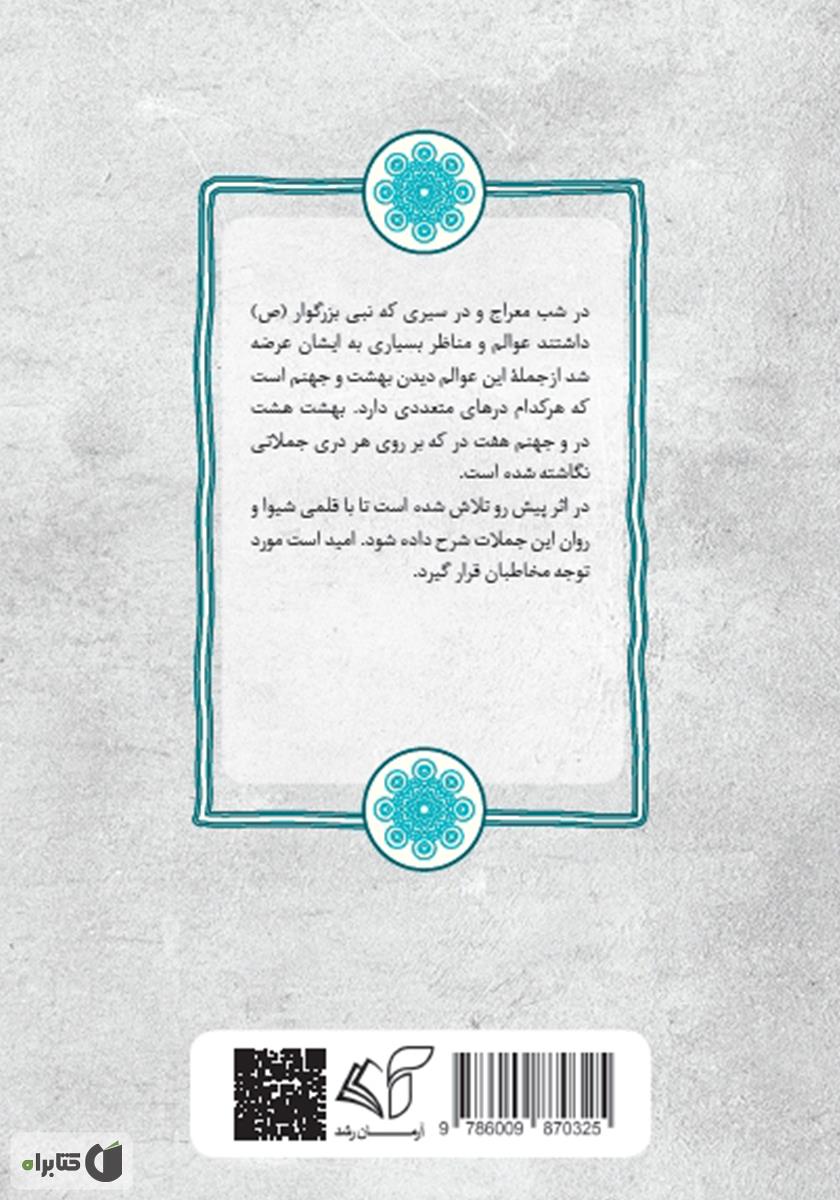 در شب معراج و در سیری که نبی بزرگوار (ص)
داشتند عوالم و مناظر بسیاری به ایشان عرضه
شد ازجملهٔ این عوالم دیدن بهشت و جهنم است
که هرکدام درهای متعددی دارد. بهشت هشت
در و جهنم هفت در که بر روی هر دری جملاتی
نگاشته شده است.
در اثر پیش رو تلاش شده است تا با قلمی شیوا و
روان این جملات شرح داده شود. امید است مورد
توجه مخاطبان قرار گیرد.
آرمان رشد
9 786009 870325
کتابراه